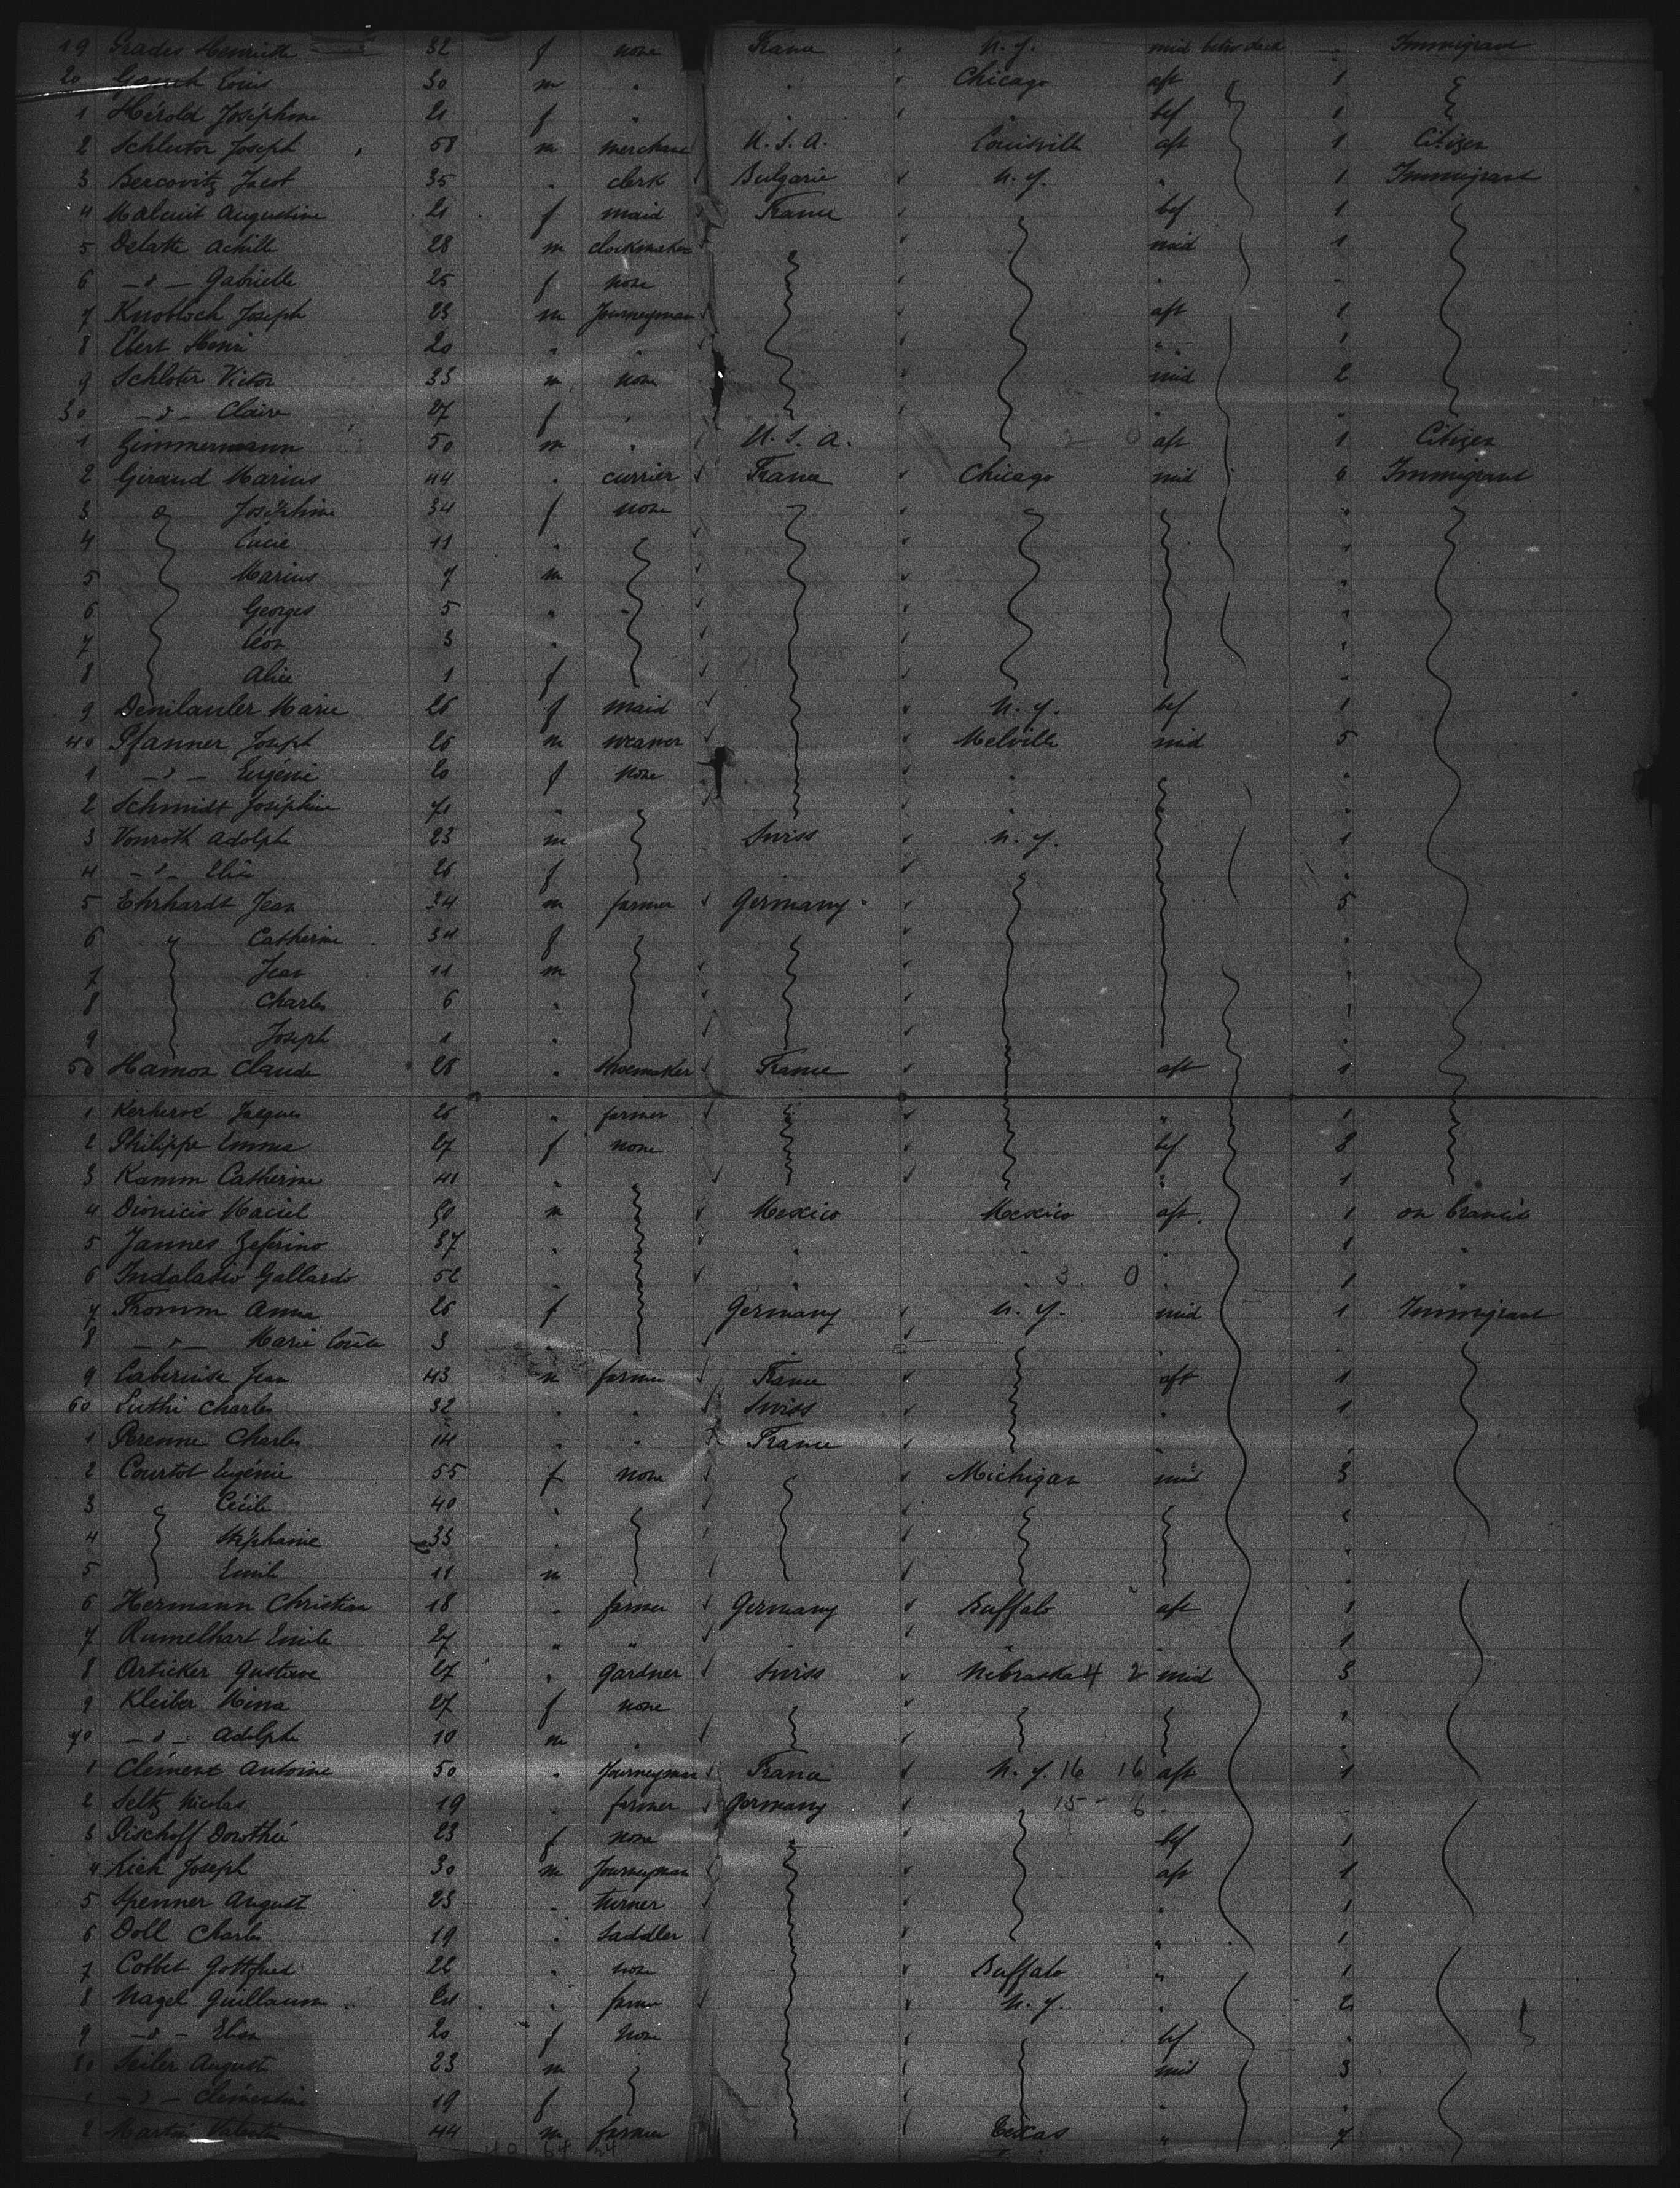 19 Grades Henriette 32 f none France N. Y. mid betw deck " Immigrant
20 Louis 30 m " " Chicago aft 1
1 Hérold Joséphine 21 f " " " bef 1
2 Schluter Joseph 58 m merchant U. S. A. Louisville aft 1 Citizen
3 Bercovitz Jacob 35 " clerk Bulgarie N. Y. " 1 Immigrant
4 Malcuit Augustine 21 f maid France bef 1
5 Delatte Achille 28 m clockmaker mid 1
6 - d - Gabrielle 25 f none " "
7 Knobloch Joseph 23 m Journeyman aft 1
8 Ebert Henri 20 " " " 1
9 Schloter Victor 33 m none mid 2
30 - d - Claire 27 f " " "
1 Zimmermann 50 m " U. S. A. aft 1 Citizen
2 Giraud Marius 44 " currier France Chicago mid 6 Immigrant
3 d Joséphine 34 f none "
4 Lucie 11 " "
5 Marius 7 m "
6 Georges 5 " "
7 Léon 3 " "
8 Alice 1 f "
9 Denilauler Marie 26 f maid N. Y. bef 1
40 Pfanner Joseph 26 m weaver Melville mid 5
1 - d - Eugénie 20 f none " "
2 Schmidt Joséphine 71 " " "
3 Vonroth Adolphe 23 m Swiss N. Y. 1
4 - d - Elis 26 f "
5 Ehrhardt Jean 34 m farmer Germany 5
6 " Catherine 34 f "
7 Jean 11 m "
8 Charles 6 " "
9 Joseph 1 " "
50 Hamon Claude 26 " shoemaker France aft 1
1 Kerhervé Jacques 26 " farmer " 1
2 Philippe Emma 27 f none bef 3
3 Kamm Catherine 41 " " 1
4 Dionicio Maciel 50 m Mexico Mexico aft 1 on transit
5 Jannes Zeferino 37 " " " " 1 "
6 Indalasio Gallardo 52 " " " 3 0 " 1 "
7 Fromm Anna 26 f Germany N. Y. mid 1 Immigrant
8 - d - Marie Louise 3 " " "
9 Jean 43 m farmer France aft 1
60 Luthi Charles 32 " " Swiss " 1
1 Perenne Charles 14 " " France " 1
2 Courtot Eugénie 55 f none Michigan mid 3
3 Cécile 40 " "
4 Stéphanie 35 " "
5 Emile 11 m "
6 Hermann Christian 18 " farmer Germany Buffalo aft 1
7 Rumelhart Emile 27 " " " " " 1
8 Articker Gustave 27 " gardner Swiss Nebraska 4 2 mid 3
9 Kleiber Mina 27 f none "
70 - d - Adolphe 10 m " "
1 Clément Antoine 50 " Journeyman France N. Y. 16 16 aft 1
2 Seltz Nicolas 19 " farmer Germany 15 - 6 " "
3 Pischoff Dorothée 23 f none bef 1
4 Rich Joseph 30 m Journeyman aft 1
5 Spenner August 23 " turner " 1
6 Doll Charles 19 " saddler " 1
7 Cobbet Gottfried 22 " none Buffalo " 1
8 Nagel Guillaume " farmer N. Y. " 2
9 - d - Elisa 20 f none bef "
80 Seiler August 23 m mid 3
1 - d - Clémentine 19 f " "
2 Martin Valentin 44 m farmer Texas " 7